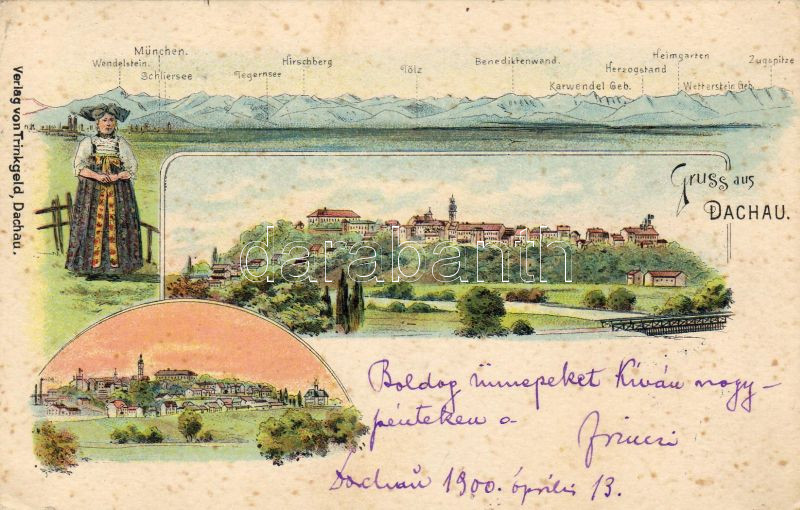 München.
Wendelstein. Hirschberg Benediktenwand. Heimgarten Zugspitze
Schliersee Tegernsee Tölz Herzogstand
Karwendel Geb. Wetterstein Geb.
Verlag von Trinkgeld, Dachau.
Gruss aus
DACHAU.
darabanth
Boldog ünnepeket Kíván nagy-
pénteken a
Dachau 1900. április 13.